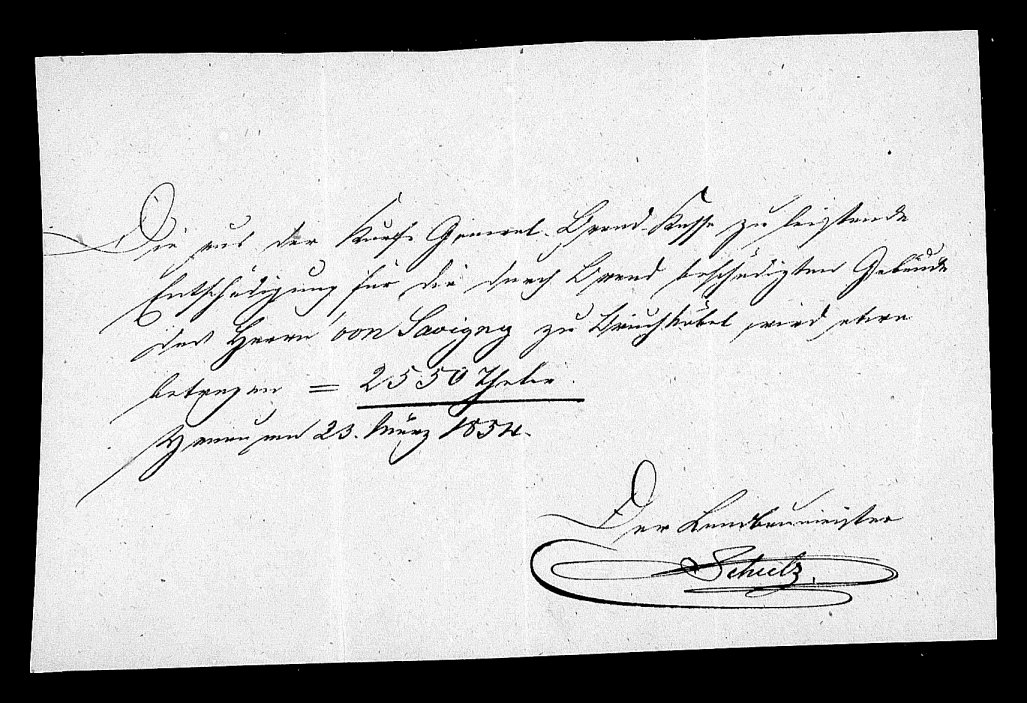 Die aus der Kurf. General-Brand-Kasse zu leistende
Entschädigung für die durch Brand beschädigten Gebäude
des Herrn von Savigny zu Bruchköbel wird etwa
betragen = 2550 Thaler.
Hanau am 23. März 1834.
Der Landbaumeister
Schulz.